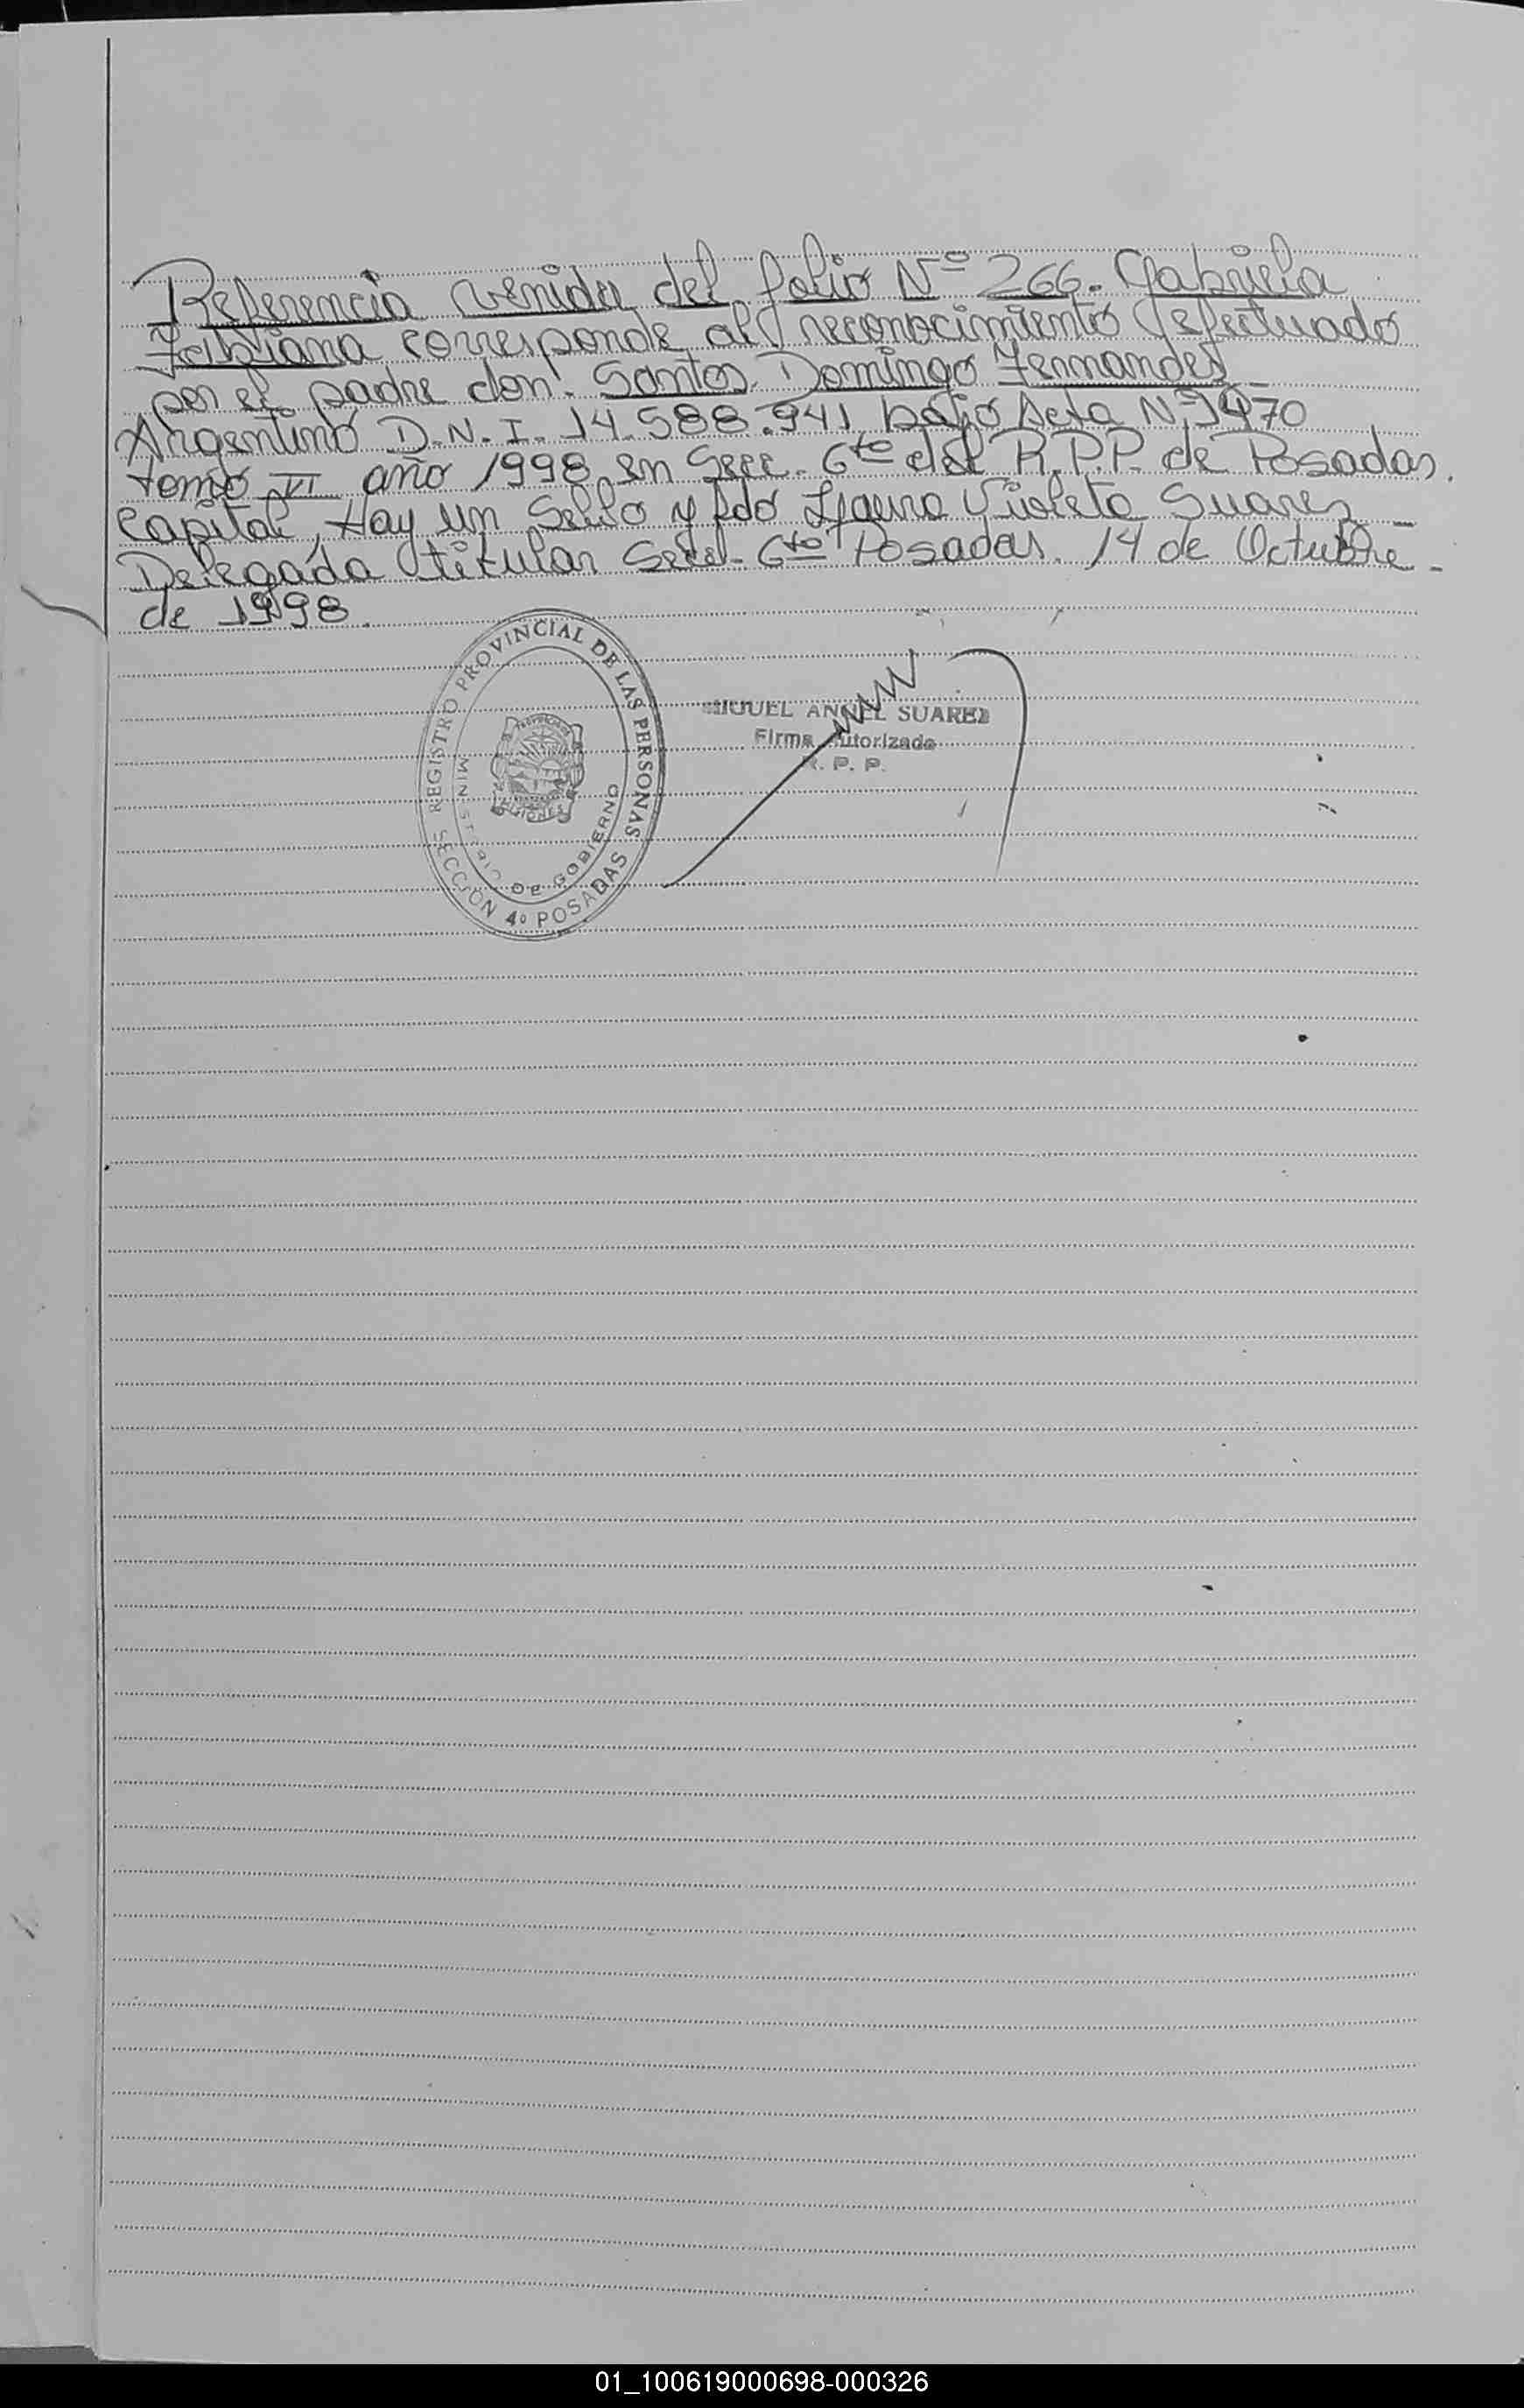 Referencia venida del folio Nº 266. Gabriela
Fabiana corresponde al reconocimiento efectuado
por el padre don: Santos Domingo Fernandez
Argentino D.N.I. 14.588.941 bajo Acta Nº 1470
tomo VI año 1998 en Secc. 6ta del R.P.P. de Posadas.
Capital, Hay un Sello y fdo Laura Violeta Suarez
Delegada titular Secc. 6ta Posadas. 14 de Octubre
de 1998.
REGISTRO PROVINCIAL DE LAS PERSONAS
MINISTERIO DE GOBIERNO
MISIONES
SECCIÓN 4º POSADAS
MIGUEL ANGEL SUAREZ
Firma Autorizada
R. P. P.
01_100619000698-000326